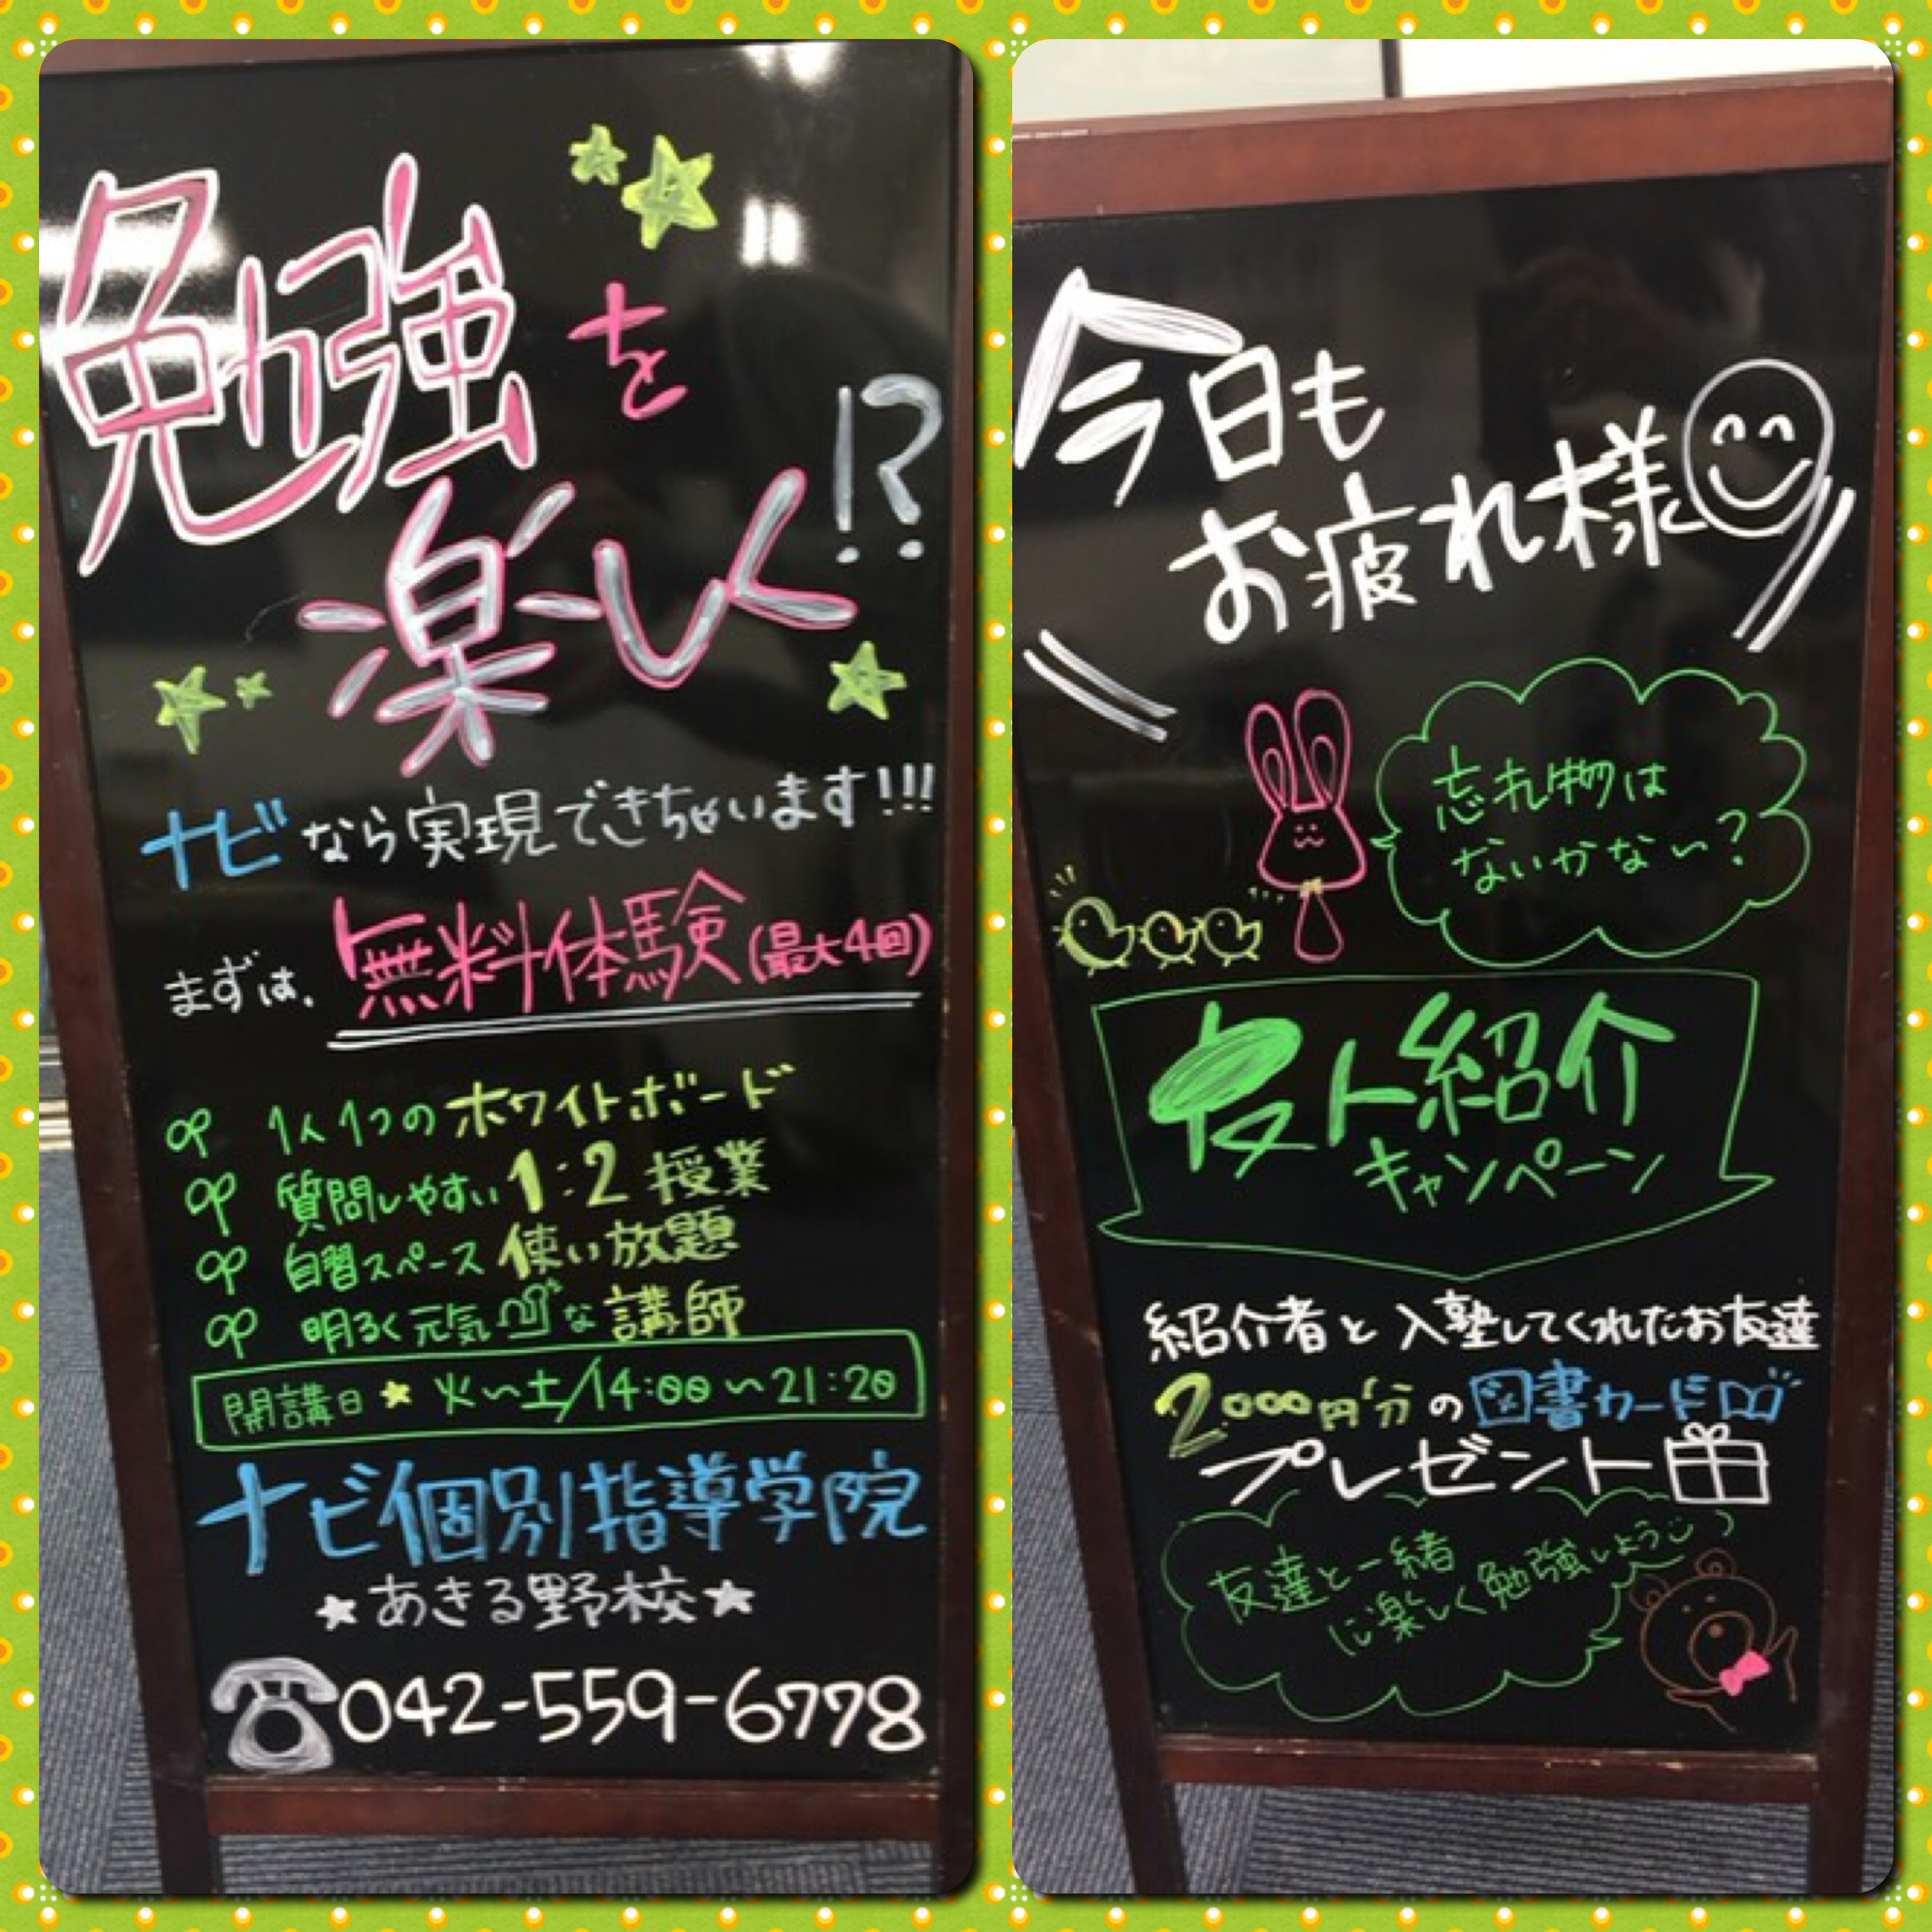 勉強を
楽しく!?
ナビなら実現できちゃいます!!!
まずは、無料体験(最大4回)
1人1つのホワイトボード
質問しやすい1:2授業
自習スペース使い放題
明るく元気な講師
開講日★火〜土/14:00〜21:20
ナビ個別指導学院
★あきる野校★
042-559-6778
今日も
お疲れ様
忘れ物は
ないかな〜?
友人紹介
キャンペーン
紹介者と入塾してくれたお友達
2000円分の図書カード
プレゼント
友達と一緒
に楽しく勉強しよう